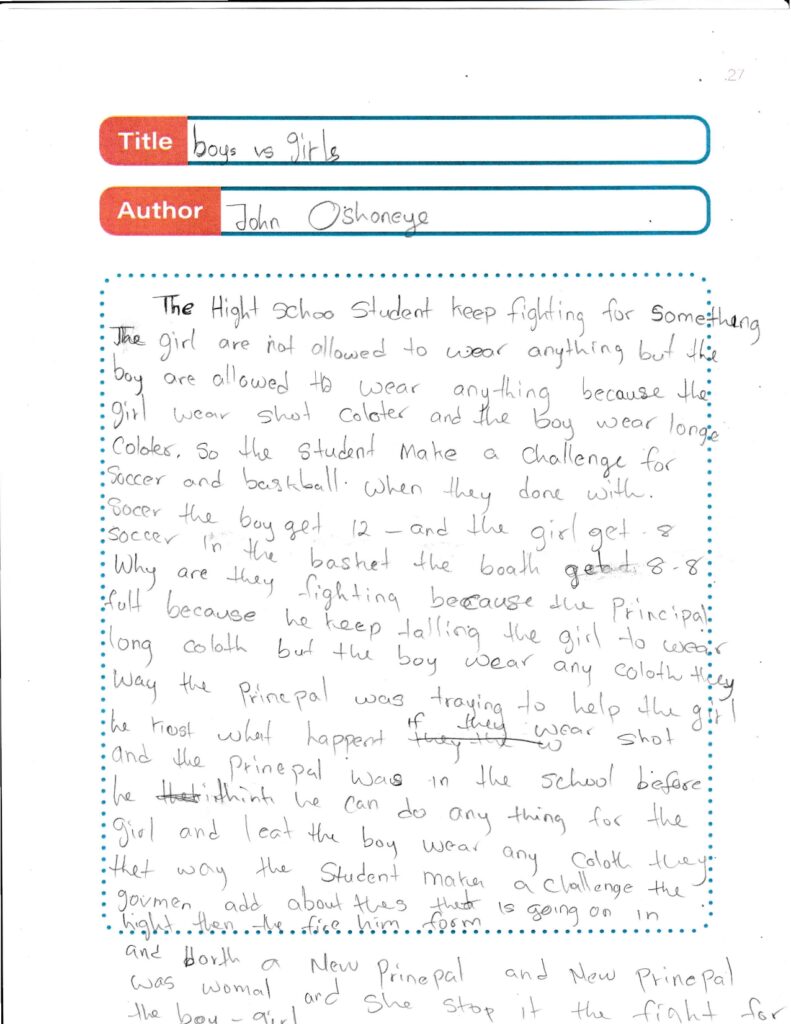 27
Title boys vs girls
Author John Oshoneye
The Hight Schoo Student keep fighting for something
The girl are not allowed to wear anything but the
boy are allowed to wear anything because the
girl wear shot coloter and the boy wear longe
Coloter. So the student Make a challenge for
Soccer and baskball. when they done with.
Socer the boy get 12 - and the girl get 8
soccer in the basket the boath get 8-8
Why are they fighting because the Principal
fult because he keep talling the girl to wear
long coloth but the boy wear any coloth they
Way the Prinepal was traying to help the girl
he what happent if they wear shot
and the Prinepal was in the school before
he he can do any thing for the
girl and leat the boy wear any coloth they
thet way the Student maker a Clallenge the
govmen add about thes is going on in
hight then the fire him form
and a New Prinepal and New Prinepal
was womal and She stop it the fight for
the boy - girl